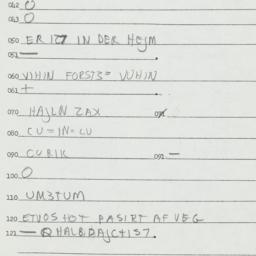 042 O
043 O
050 ER IZ IN DER HEJM
051 —
060 VIHIN FORSTS = VUHIN
061 +
070 HAJLN ZAX 071
080 CU = IN = CU
090 CURIK 091 —
100 O
110 UM3TUM
120 ETVOS HOT PASIRT AF VEG
121 — Q HALBDAJCTIST.